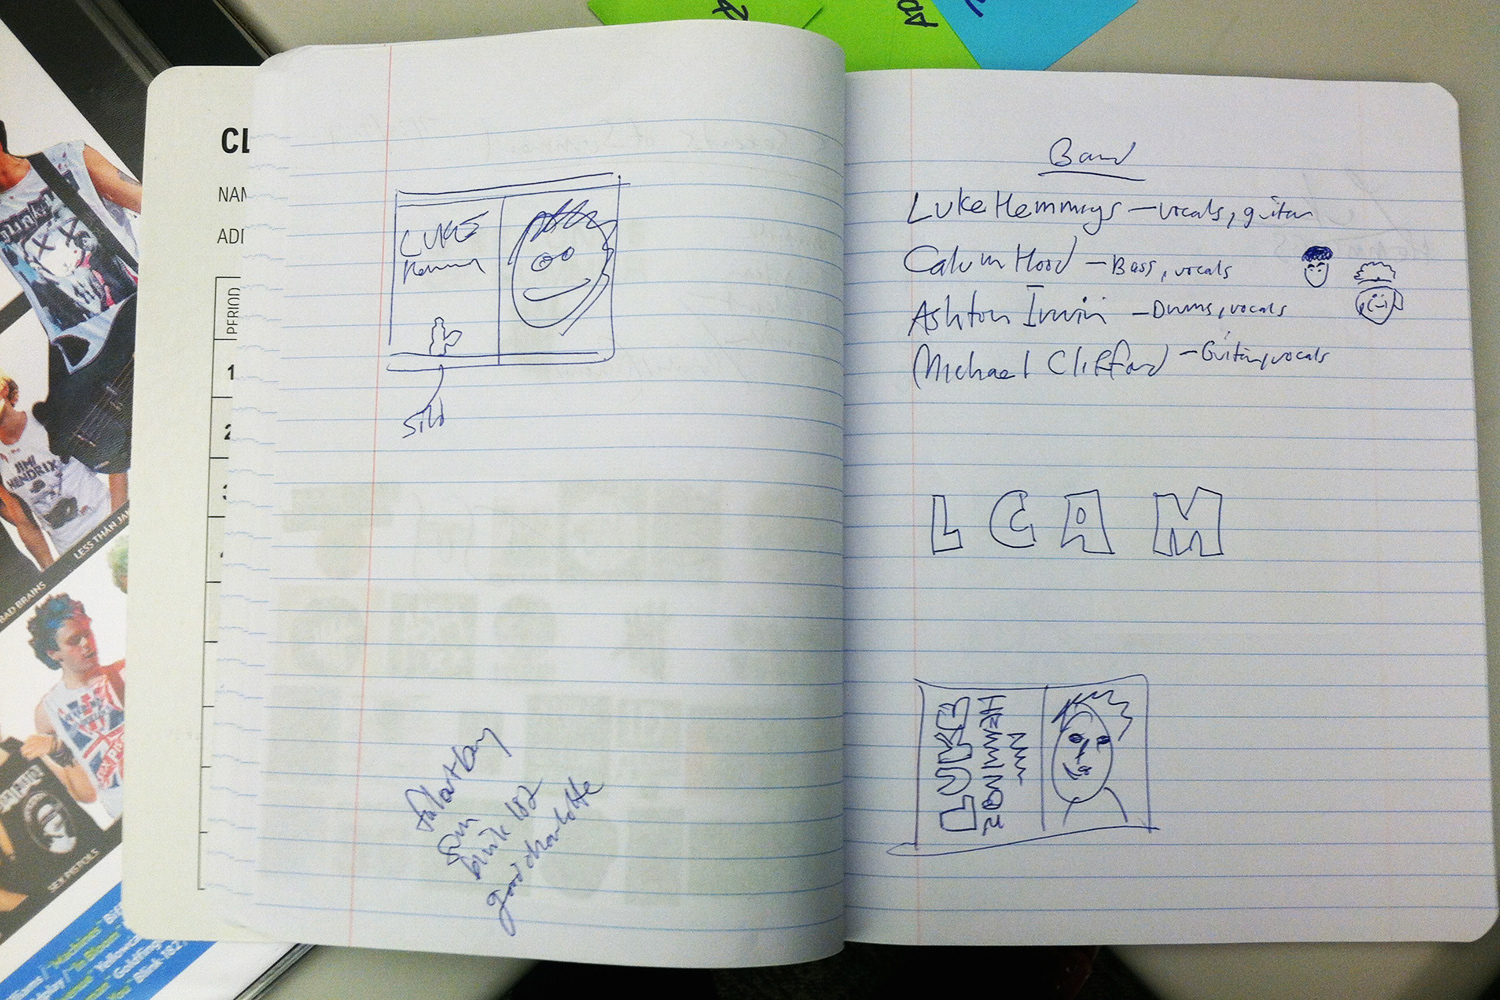 CL
NAM
ADI
PERIOD
1
2
LUKE
silo
fall out boy
sum
blink 182
good charlotte
Band
Luke Hemmings – vocals, guitar
Calum Hood – Bass, vocals
Ashton Irwin – Drums, vocals
Michael Clifford – Guitar, vocals
L C A M
LUKE
HEMMINGS
JIMI
HENDRIX
LESS THAN JA
BAD BRAINS
SEX PISTOLS
Machines
Yellowc
Goldfing
Blink 182